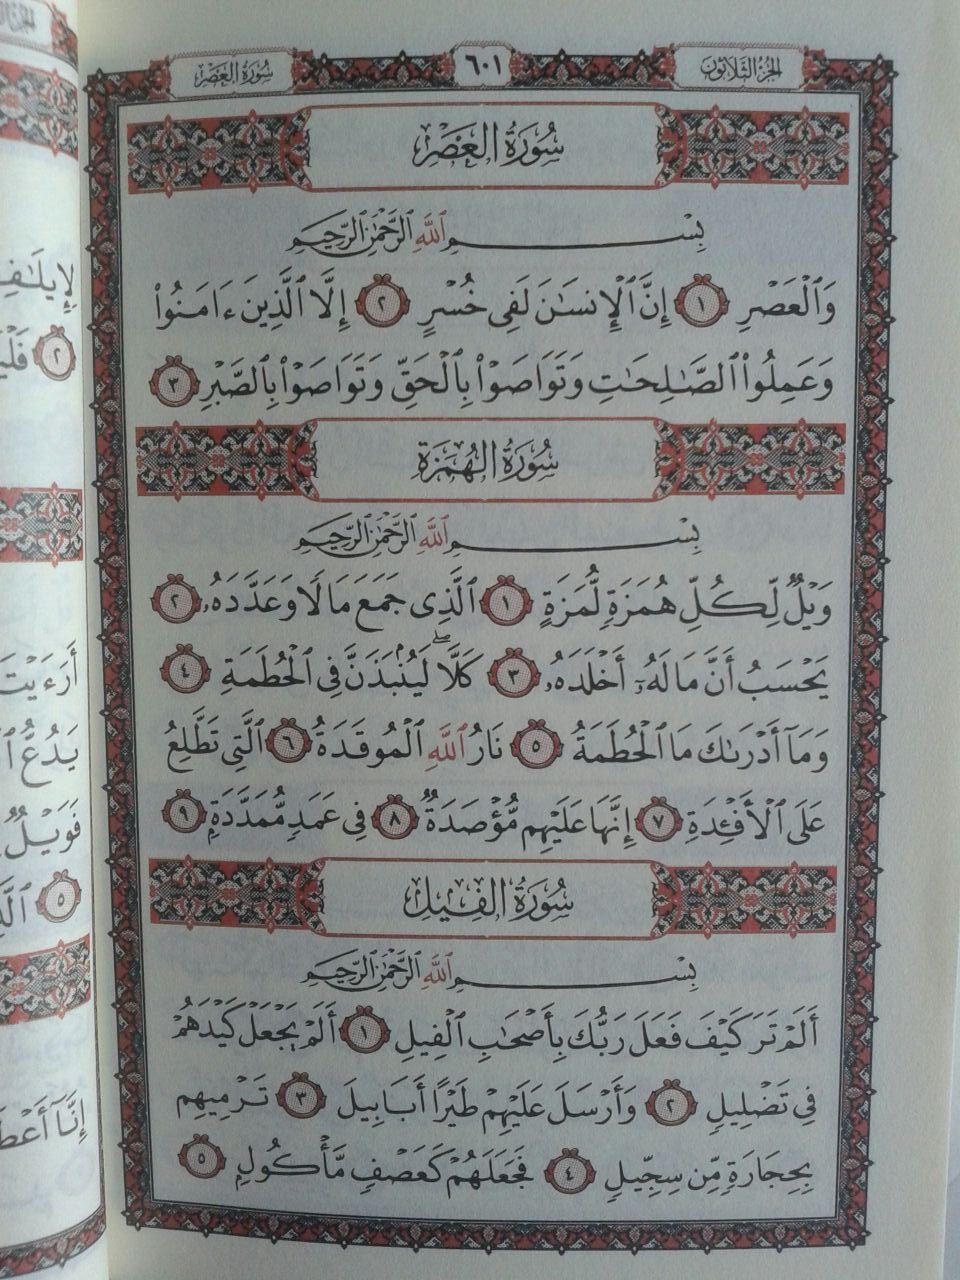 الجزء الثلاثون
٦٠١
سورة العصر
سُورَةُ العَصْرِ
بِسْمِ ٱللَّهِ ٱلرَّحْمَٰنِ ٱلرَّحِيمِ
وَٱلْعَصْرِ ١ إِنَّ ٱلْإِنسَٰنَ لَفِى خُسْرٍ ٢ إِلَّا ٱلَّذِينَ ءَامَنُوا۟
وَعَمِلُوا۟ ٱلصَّٰلِحَٰتِ وَتَوَاصَوْا۟ بِٱلْحَقِّ وَتَوَاصَوْا۟ بِٱلصَّبْرِ ٣
سُورَةُ الهُمَزَةِ
بِسْمِ ٱللَّهِ ٱلرَّحْمَٰنِ ٱلرَّحِيمِ
وَيْلٌ لِّكُلِّ هُمَزَةٍ لُّمَزَةٍ ١ ٱلَّذِى جَمَعَ مَالًا وَعَدَّدَهُۥ ٢
يَحْسَبُ أَنَّ مَالَهُۥٓ أَخْلَدَهُۥ ٣ كَلَّا ۖ لَيُنۢبَذَنَّ فِى ٱلْحُطَمَةِ ٤
وَمَآ أَدْرَىٰكَ مَا ٱلْحُطَمَةُ ٥ نَارُ ٱللَّهِ ٱلْمُوقَدَةُ ٦ ٱلَّتِى تَطَّلِعُ
عَلَى ٱلْأَفْـِٔدَةِ ٧ إِنَّهَا عَلَيْهِم مُّؤْصَدَةٌ ٨ فِى عَمَدٍ مُّمَدَّدَةٍۭ ٩
سُورَةُ الفِيلِ
بِسْمِ ٱللَّهِ ٱلرَّحْمَٰنِ ٱلرَّحِيمِ
أَلَمْ تَرَ كَيْفَ فَعَلَ رَبُّكَ بِأَصْحَٰبِ ٱلْفِيلِ ١ أَلَمْ يَجْعَلْ كَيْدَهُمْ
فِى تَضْلِيلٍ ٢ وَأَرْسَلَ عَلَيْهِمْ طَيْرًا أَبَابِيلَ ٣ تَرْمِيهِم
بِحِجَارَةٍ مِّن سِجِّيلٍ ٤ فَجَعَلَهُمْ كَعَصْفٍ مَّأْكُولٍۭ ٥
لِإِيلَٰفِ
٢
أَرَءَيْتَ
يَدُعُّ
فَوَيْلٌ
٥
إِنَّآ